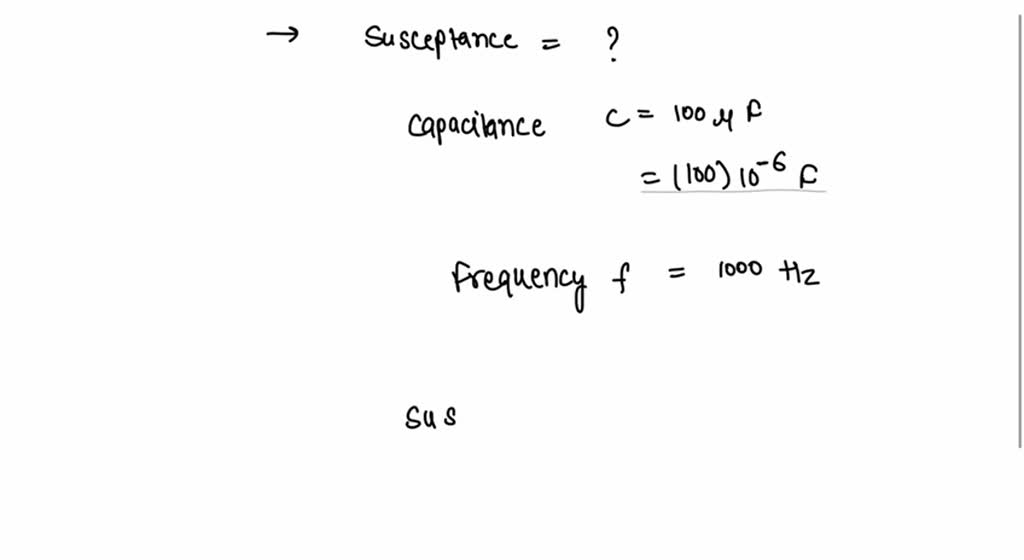 → Susceptance = ?
Capacitance C = 100 μ F
= (100) 10⁻⁶ F
Frequency f = 1000 Hz
Sus